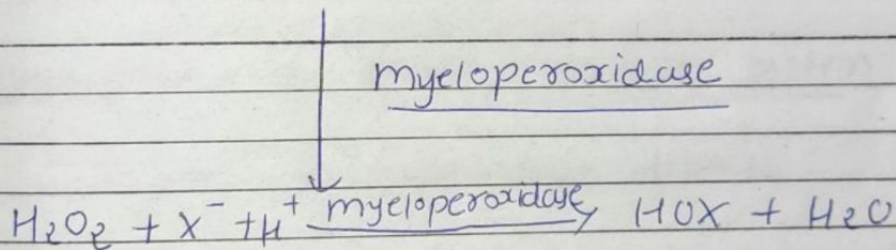 myeloperoxidase
H₂O₂ + X⁻ + H⁺ myeloperoxidase → HOX + H₂O